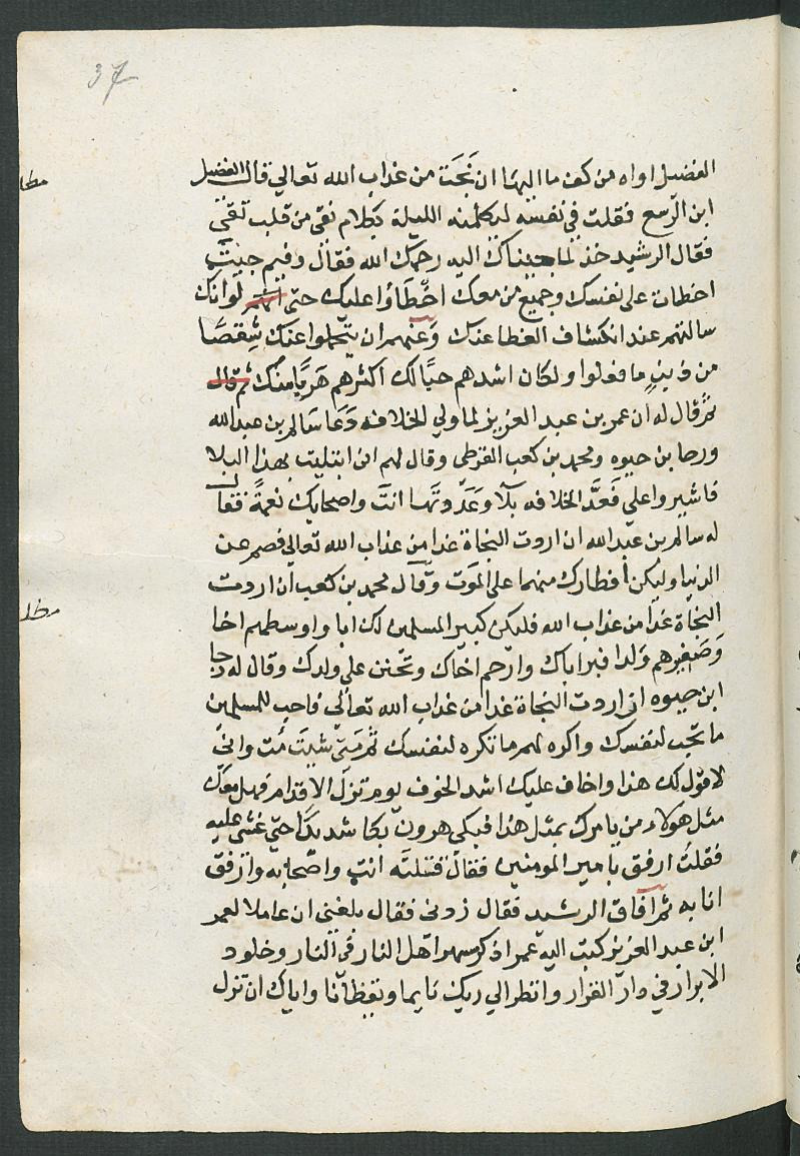 37
الفضيل اواه من كف ما الينها ان نَجَت من عذاب الله تعالي قال الفضل
ابن الرسع فقلت في نفسه ليكلمنه الليلة بكلام نقي من قلب تقي
فقال الرشيد خذ لما جيناك اليه رحمك الله فقال وفيم جيت
احطات على نفسك وجميع من معك اخطَاوُا عليك حتى انهم لوانك
سالتهم عند انكشاف الغطا عنك وعنهم ان يتحملوا عنك شِقصًا
من ذنبٍ ما فعلوا ولكان اشدهم حبًا لك اكثرهم هَربًا منك ثم قال
ثم قال له ان عمر بن عبد العزيز لما ولي الخلافه دَعَا سالم بن عبد الله
ورجا بن حيوه ومحمد بن كعب القرظي وقال لهم اني ابتليت بهذا البلا
فاشيروا علي فَعدَّ الخلافه بلآ وعَدَدتَها انتَ واصحابك نعمةً فقال
له سالم بن عبد الله ان اردت النجاة غدا من عذاب الله تعالي فصم عن
الدنيا وليكن افطارك منها على الموَت وقال محمد بن كعب ان اردت
النجاة غدا من عذاب الله فليكن كبير المسلمين لك ابا واوسطهم اخا
وصَغيرهم وَلدا فبر اباك وارحم اخاك وتحنن علي ولدك وقال له رجا
ابن حيوه ان اردت النجاة غدا من عذاب الله تعالي فاحب للمسلمين
ما تحب لنفسك واكره لهم ما تكره لنفسك ثم متي شيتَ مُت واني
لاقول لك هذا واخاف عليك اشد الخوف يوم تزل الاقدام فهل معك
مثل هولاء من يامرك بمثل هذا فبكي هرون بكا شديدًا حتي غشي عليه
فقلتُ ارفق يامير المومنين فقال قتلتَه انت واصحابه وارفق
انا به ثم آفاق الرشيد فقال زدني فقال بلغني ان عاملا لعمر
ابن عبد العزيز كتب اليه عمر اذكر سهر اهل النار في النار وخلود
الابرار في دار القرار وانظر الي ربك نايما ويقظانا واياك ان تزل